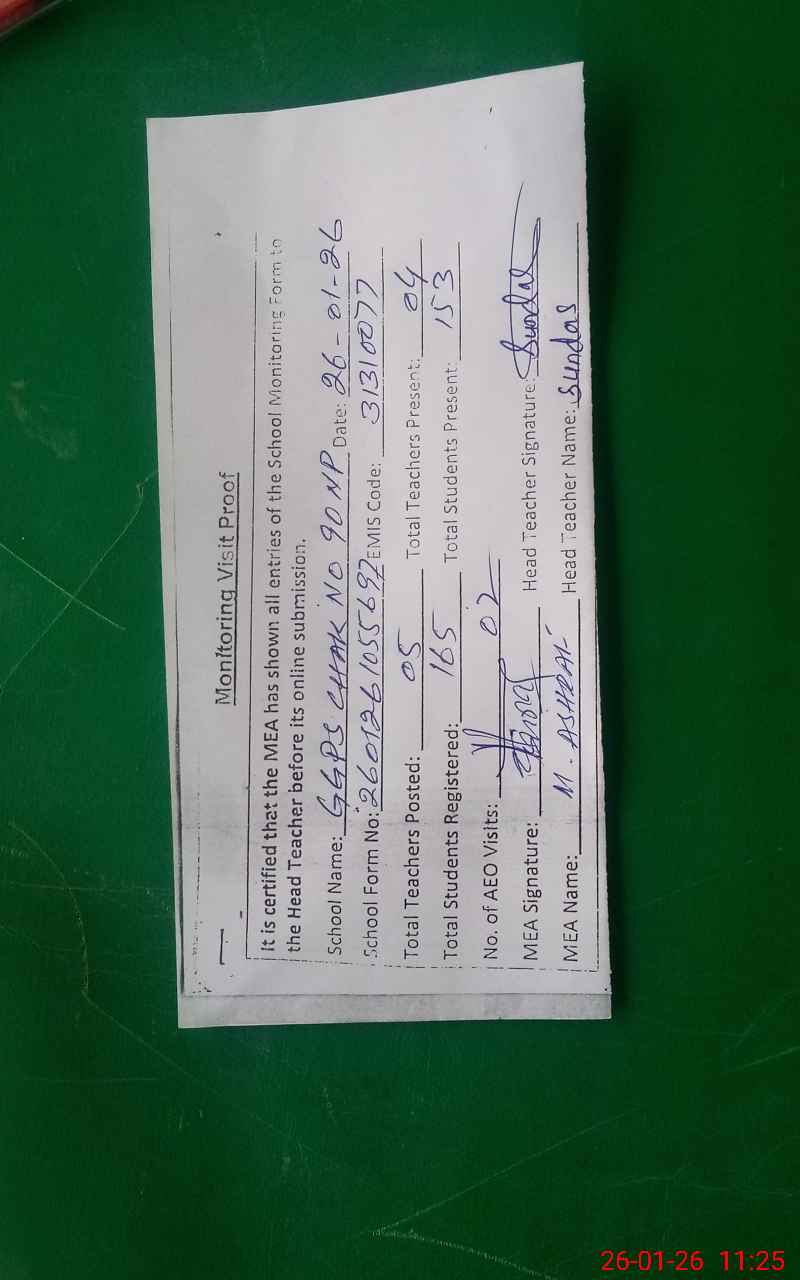 Monitoring Visit Proof
It is certified that the MEA has shown all entries of the School Monitoring Form to
the Head Teacher before its online submission.
School Name: GGPS CHAK NO 90 NP Date: 26-01-26
School Form No: 2601261055697 EMIS Code: 31310077
Total Teachers Posted: 05 Total Teachers Present: 04
Total Students Registered: 165 Total Students Present: 153
No. of AEO Visits: 02
MEA Signature: Head Teacher Signature: Sundas
MEA Name: M. ASHRAF Head Teacher Name: Sundas
26-01-26 11:25